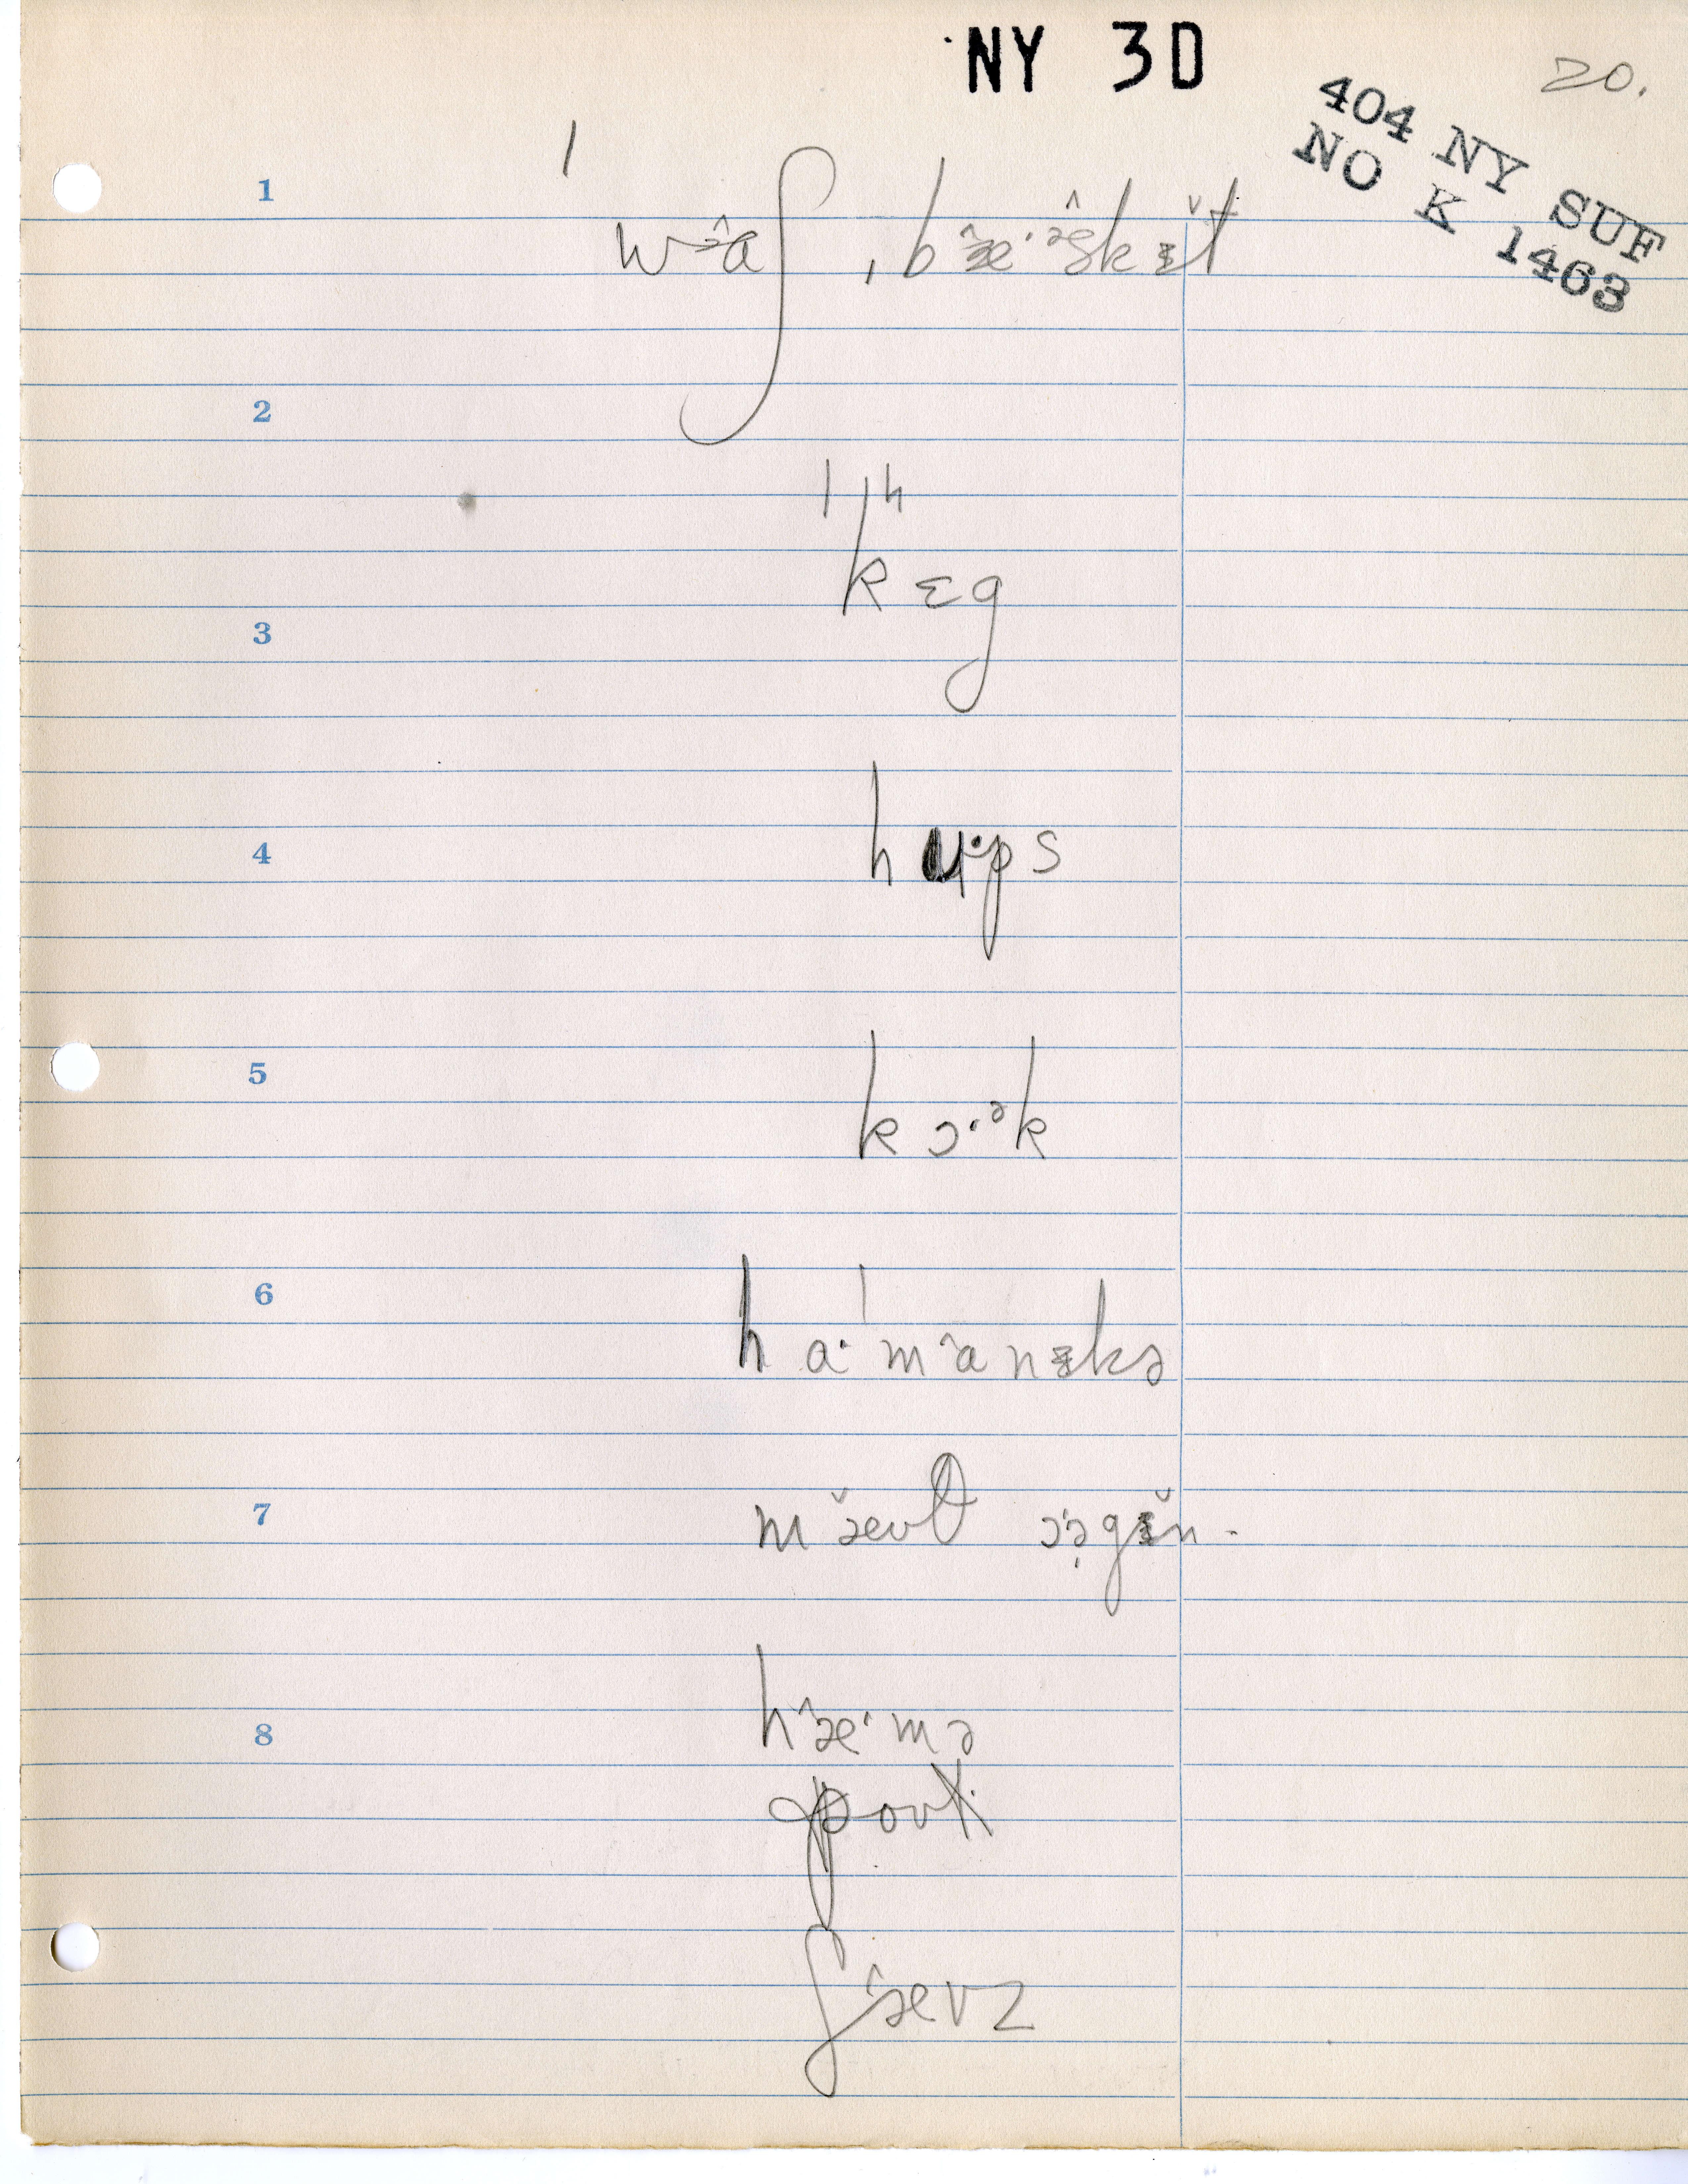 NY 3D
20.
404 NY SUF
NO K 1463
1
ˈwɑ̂ʃˌbæ̂·ə̂skɪ̆t
2
ˈkʰɛg
3
4
hu·ps
5
kɔ·ᵊk
6
hɑ·ˈmɑ̂nɪkə
7
mæ̆ʊθ ɔə̣gɪ̆n-
8
hæ̂·mə
poʊk
ʃæ̂ʊz